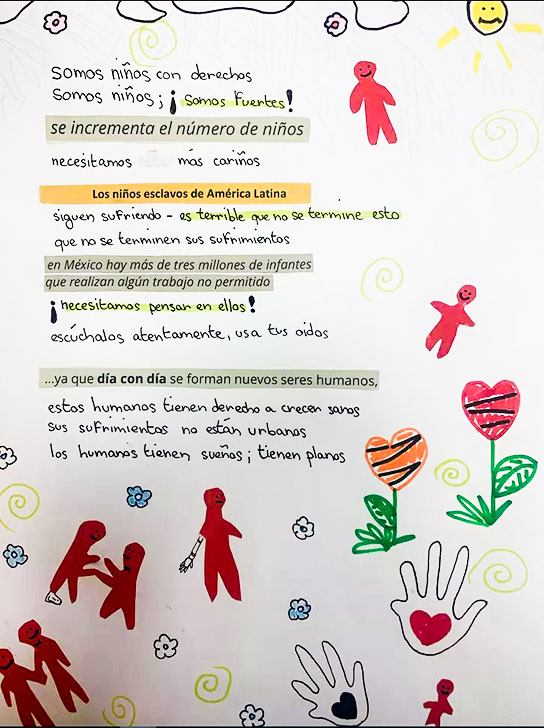 somos niños con derechos
somos niños; ¡somos fuertes!
se incrementa el número de niños
necesitamos más cariños
Los niños esclavos de América Latina
siguen sufriendo - es terrible que no se termine esto
que no se terminen sus sufrimientos
en México hay más de tres millones de infantes
que realizan algún trabajo no permitido
¡necesitamos pensar en ellos!
escúchalos atentamente, usa tus oidos
...ya que día con día se forman nuevos seres humanos,
estos humanos tienen derecho a crecer sanos
sus sufrimientos no están urbanos
los humanos tienen sueños; tienen planos